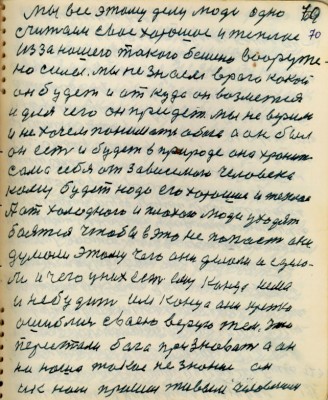 70
Мы все этому делу люди одно 70
считаем свае хорошое и теплае
из за нашего такого
но силы. мы не знаем врага какой
он будет и от куда он возмется
и для чего он придет. мы не верим
и не хочем понимать обога а он был
он есть и будет в природе она хранит
сама себя от зависемого человека
кому будет надо его хорошие и теплае
А от холодного и плохого люди уходят
боятся чтобы в это не попаст они
думали этому чаго они делали и сдела
ли и чего у них есть ему конца нема
и небудит им конца они
ошиблис сваею верую тем. што
перестали бога признават а он
на наша такое не знание он
к нам пришол живым человеком